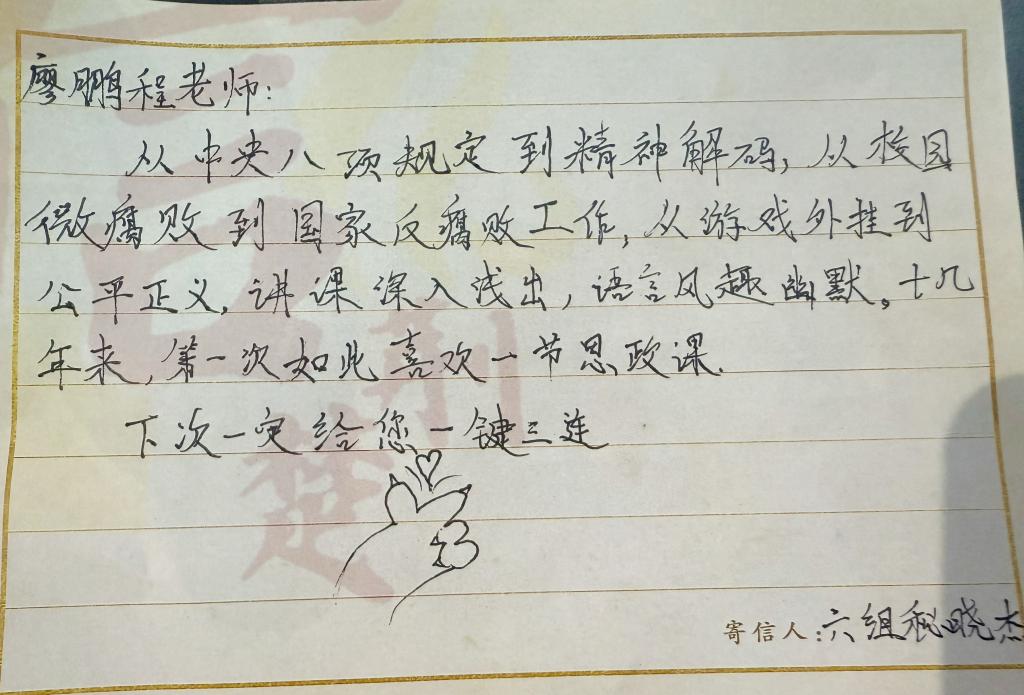 廖鹏程老师:
从中央八项规定到精神解码,从校园
微腐败到国家反腐败工作,从游戏外挂到
公平正义,讲课深入浅出,语言风趣幽默。十几
年来,第一次如此喜欢一节思政课.
下次一定给您一键三连
寄信人:六组秘晓杰